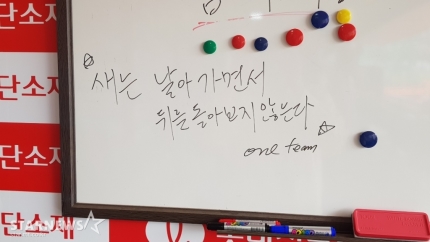 단소재
새는 날아가면서
뒤를 돌아보지 않는다
one team
단소재
STARNEWS